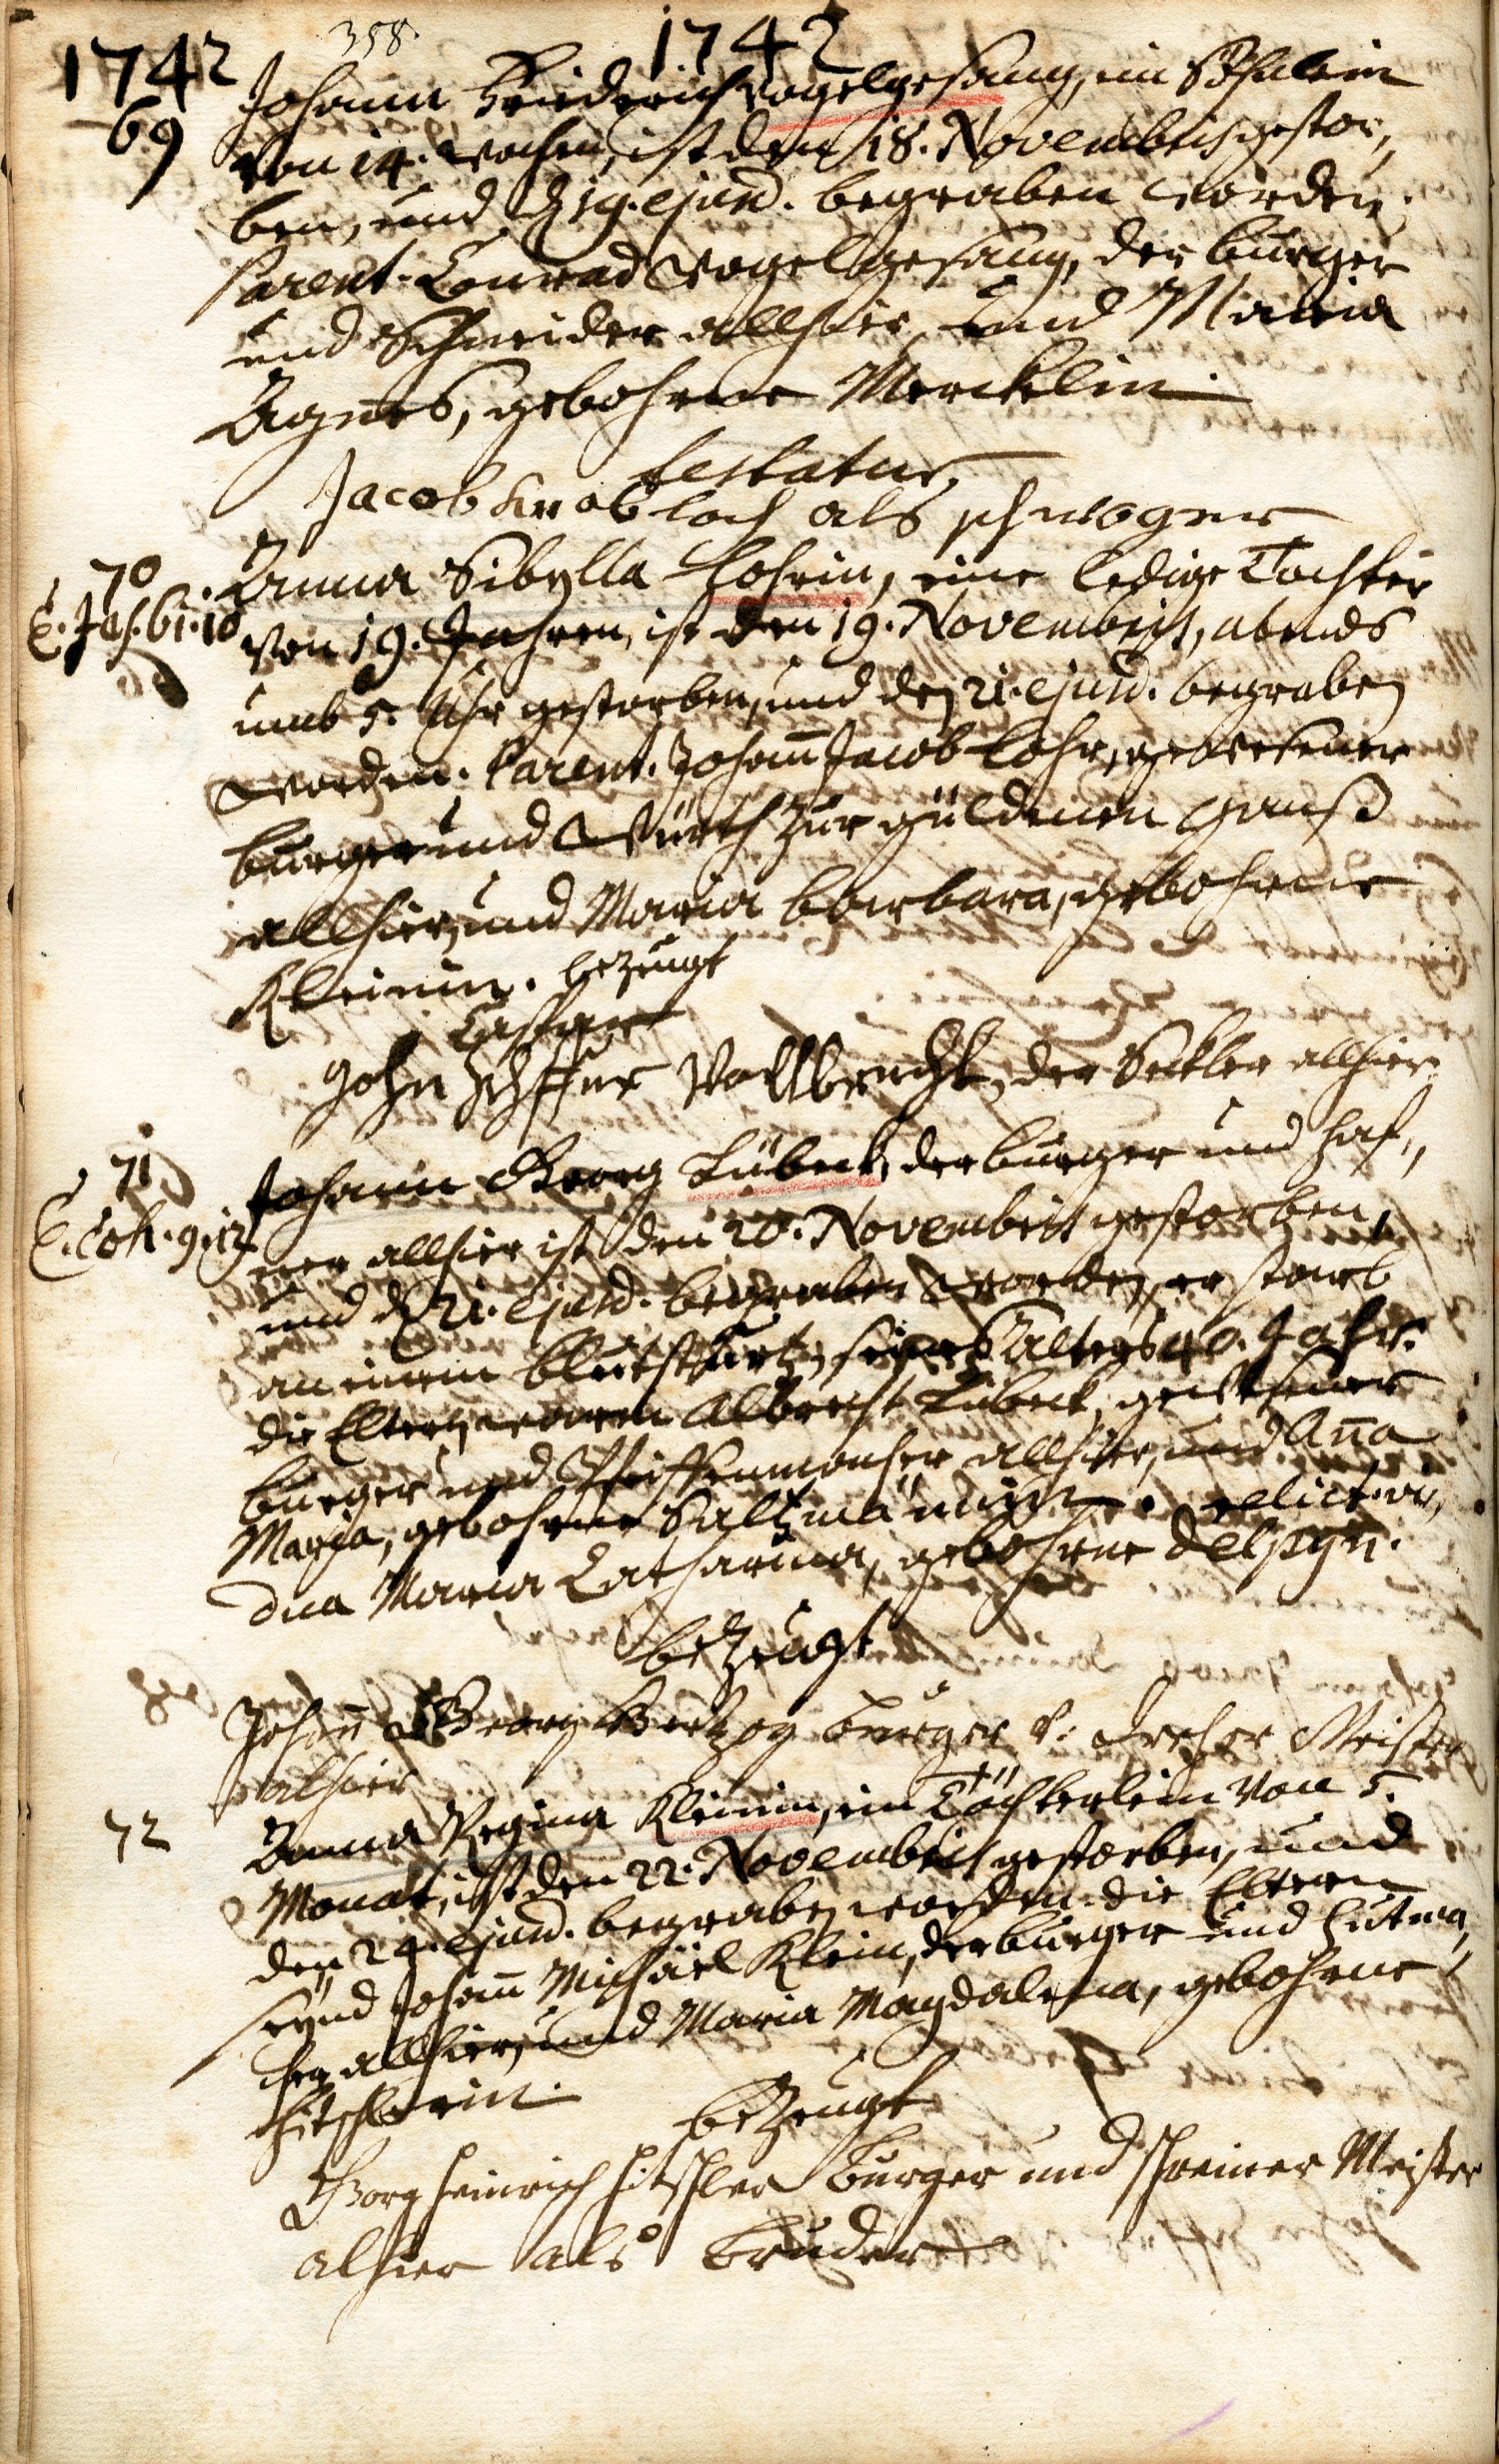 358.
1742 1742
69 Johann Friederich Vogelgesang, ein Söhnlein
von 14. Wochen, ist den 18. Novembris gestor,,
ben, und d. 19. ejusd. begraben worden.
Parent. Conrad Vogelgesang, der burger
und Schneider allhier, und Maria
Agnes, gebohrne Mercklin.
testatur
Jacob Knobloch als schwoger
70 Anna Sibylla Lohrin, eine ledige Tochter
C. Jes. 61. 10 von 19. Jahren, ist den 19. Novembris, abends
umb 5. Uhr gestorben, und den 21. ejusd. begraben
worden. Parent. Johann Jacob Lohr, gewesener
burger und Würth zur güldenen Ganß
allhier, und Maria Barbara, gebohrne
Kleinin. bezeugt
Caspar
John Vollbrecht, der Seckler allhier
71 Johann Georg Lübeck, der burger und Haf,,
C. Coh. 9. 12 ner allhier ist den 20. Novembris gestorben,
und d. 21. ejusd. begraben worden, er starb
an einem blutsturtz, seines Alters 40. Jahr.
die Eltern waren Albrecht Lübeck, gewesener
burger und Pfeiffenmacher allhier, und Anna
Maria, gebohrne Saltzmännin. relict. vi,
dua Maria Catharina, gebohrne Delpyn.
bezeugt
Johann Georg Hertzog burger v. dreher Meister
alhier
72 Anna Regina Kleinin, ein Töchterlein von 5.
Monat, ist den 22. Novembris gestorben, und
den 24. ejusd. begraben worden. die Eltern
seynd Johann Michäel Klein, der burger und Hutma,
cher allhier, und Maria Magdalena, gebohrne
Hitschlerin.
bezeugt
Georg Heinrich Hitschler burger und schreiner Meister
alhier als bruder